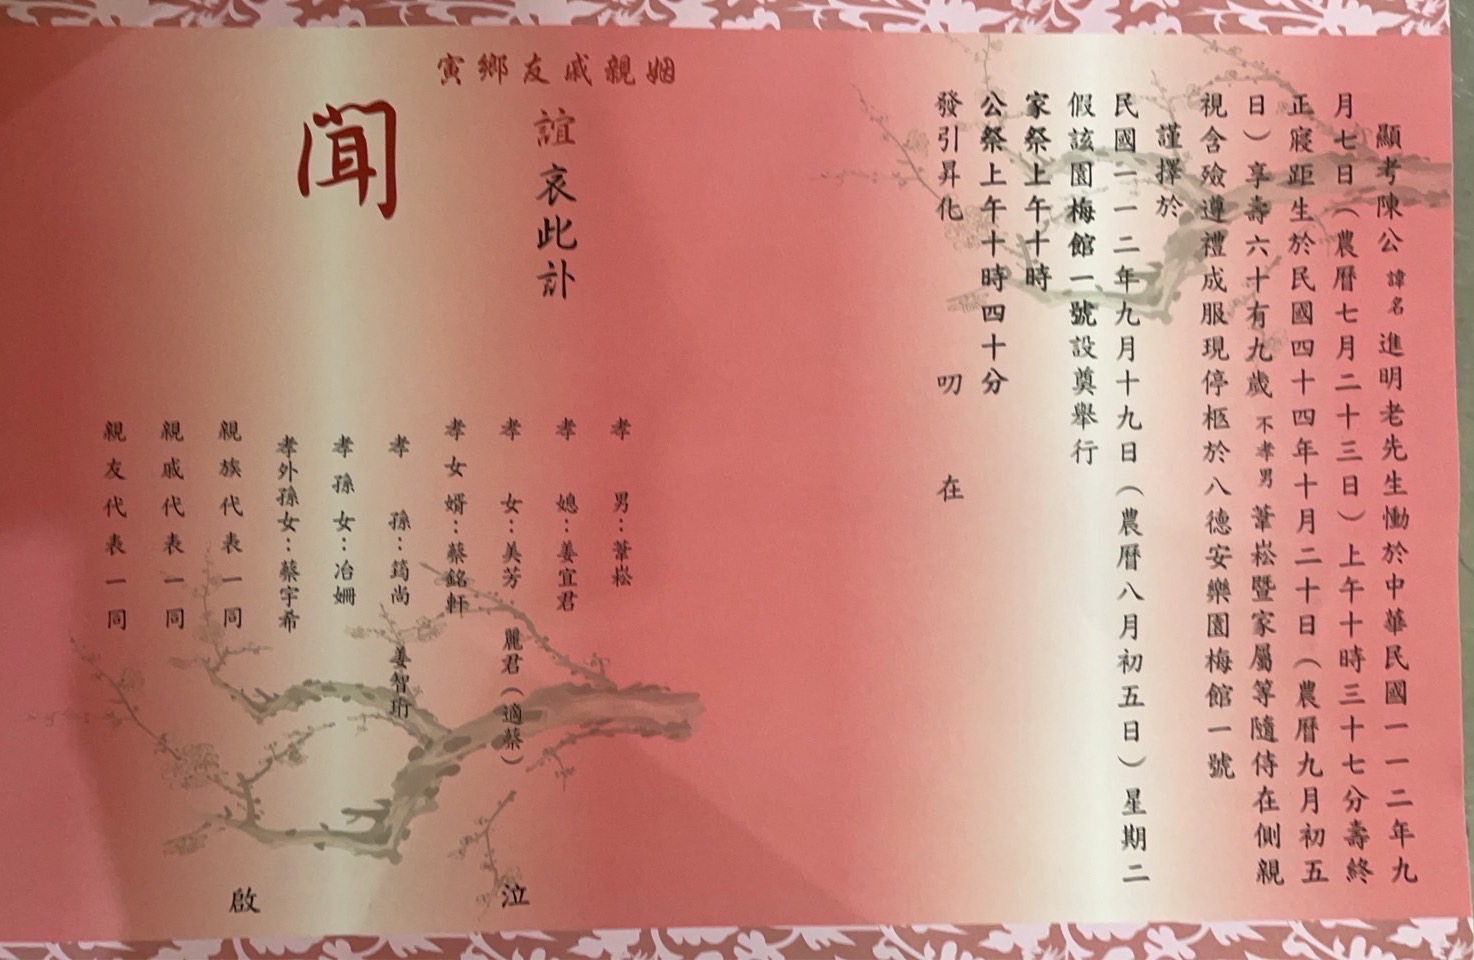 顯考陳公諱名進明老先生慟於中華民國一一二年九
月七日（農曆七月二十三日）上午十時三十七分壽終
正寢距生於民國四十四年十月二十日（農曆九月初五
日）享壽六十有九歲不孝男葦崧暨家屬等隨侍在側親
視含殮遵禮成服現停柩於八德安樂園梅館一號
謹擇於
民國一一二年九月十九日（農曆八月初五日）星期二
假該園梅館一號設奠舉行
家祭上午十時
公祭上午十時四十分
發引昇化 叨 在
姻親戚友鄉寅
誼哀此訃
聞
孝男：葦崧
孝媳：姜宜君
孝女：美芳 麗君（適蔡）
孝女婿：蔡銘軒
孝孫：筠尚 姜智珩
孝孫女：冶姍
孝外孫女：蔡宇希
泣
親族代表一同
親戚代表一同
親友代表一同
啟